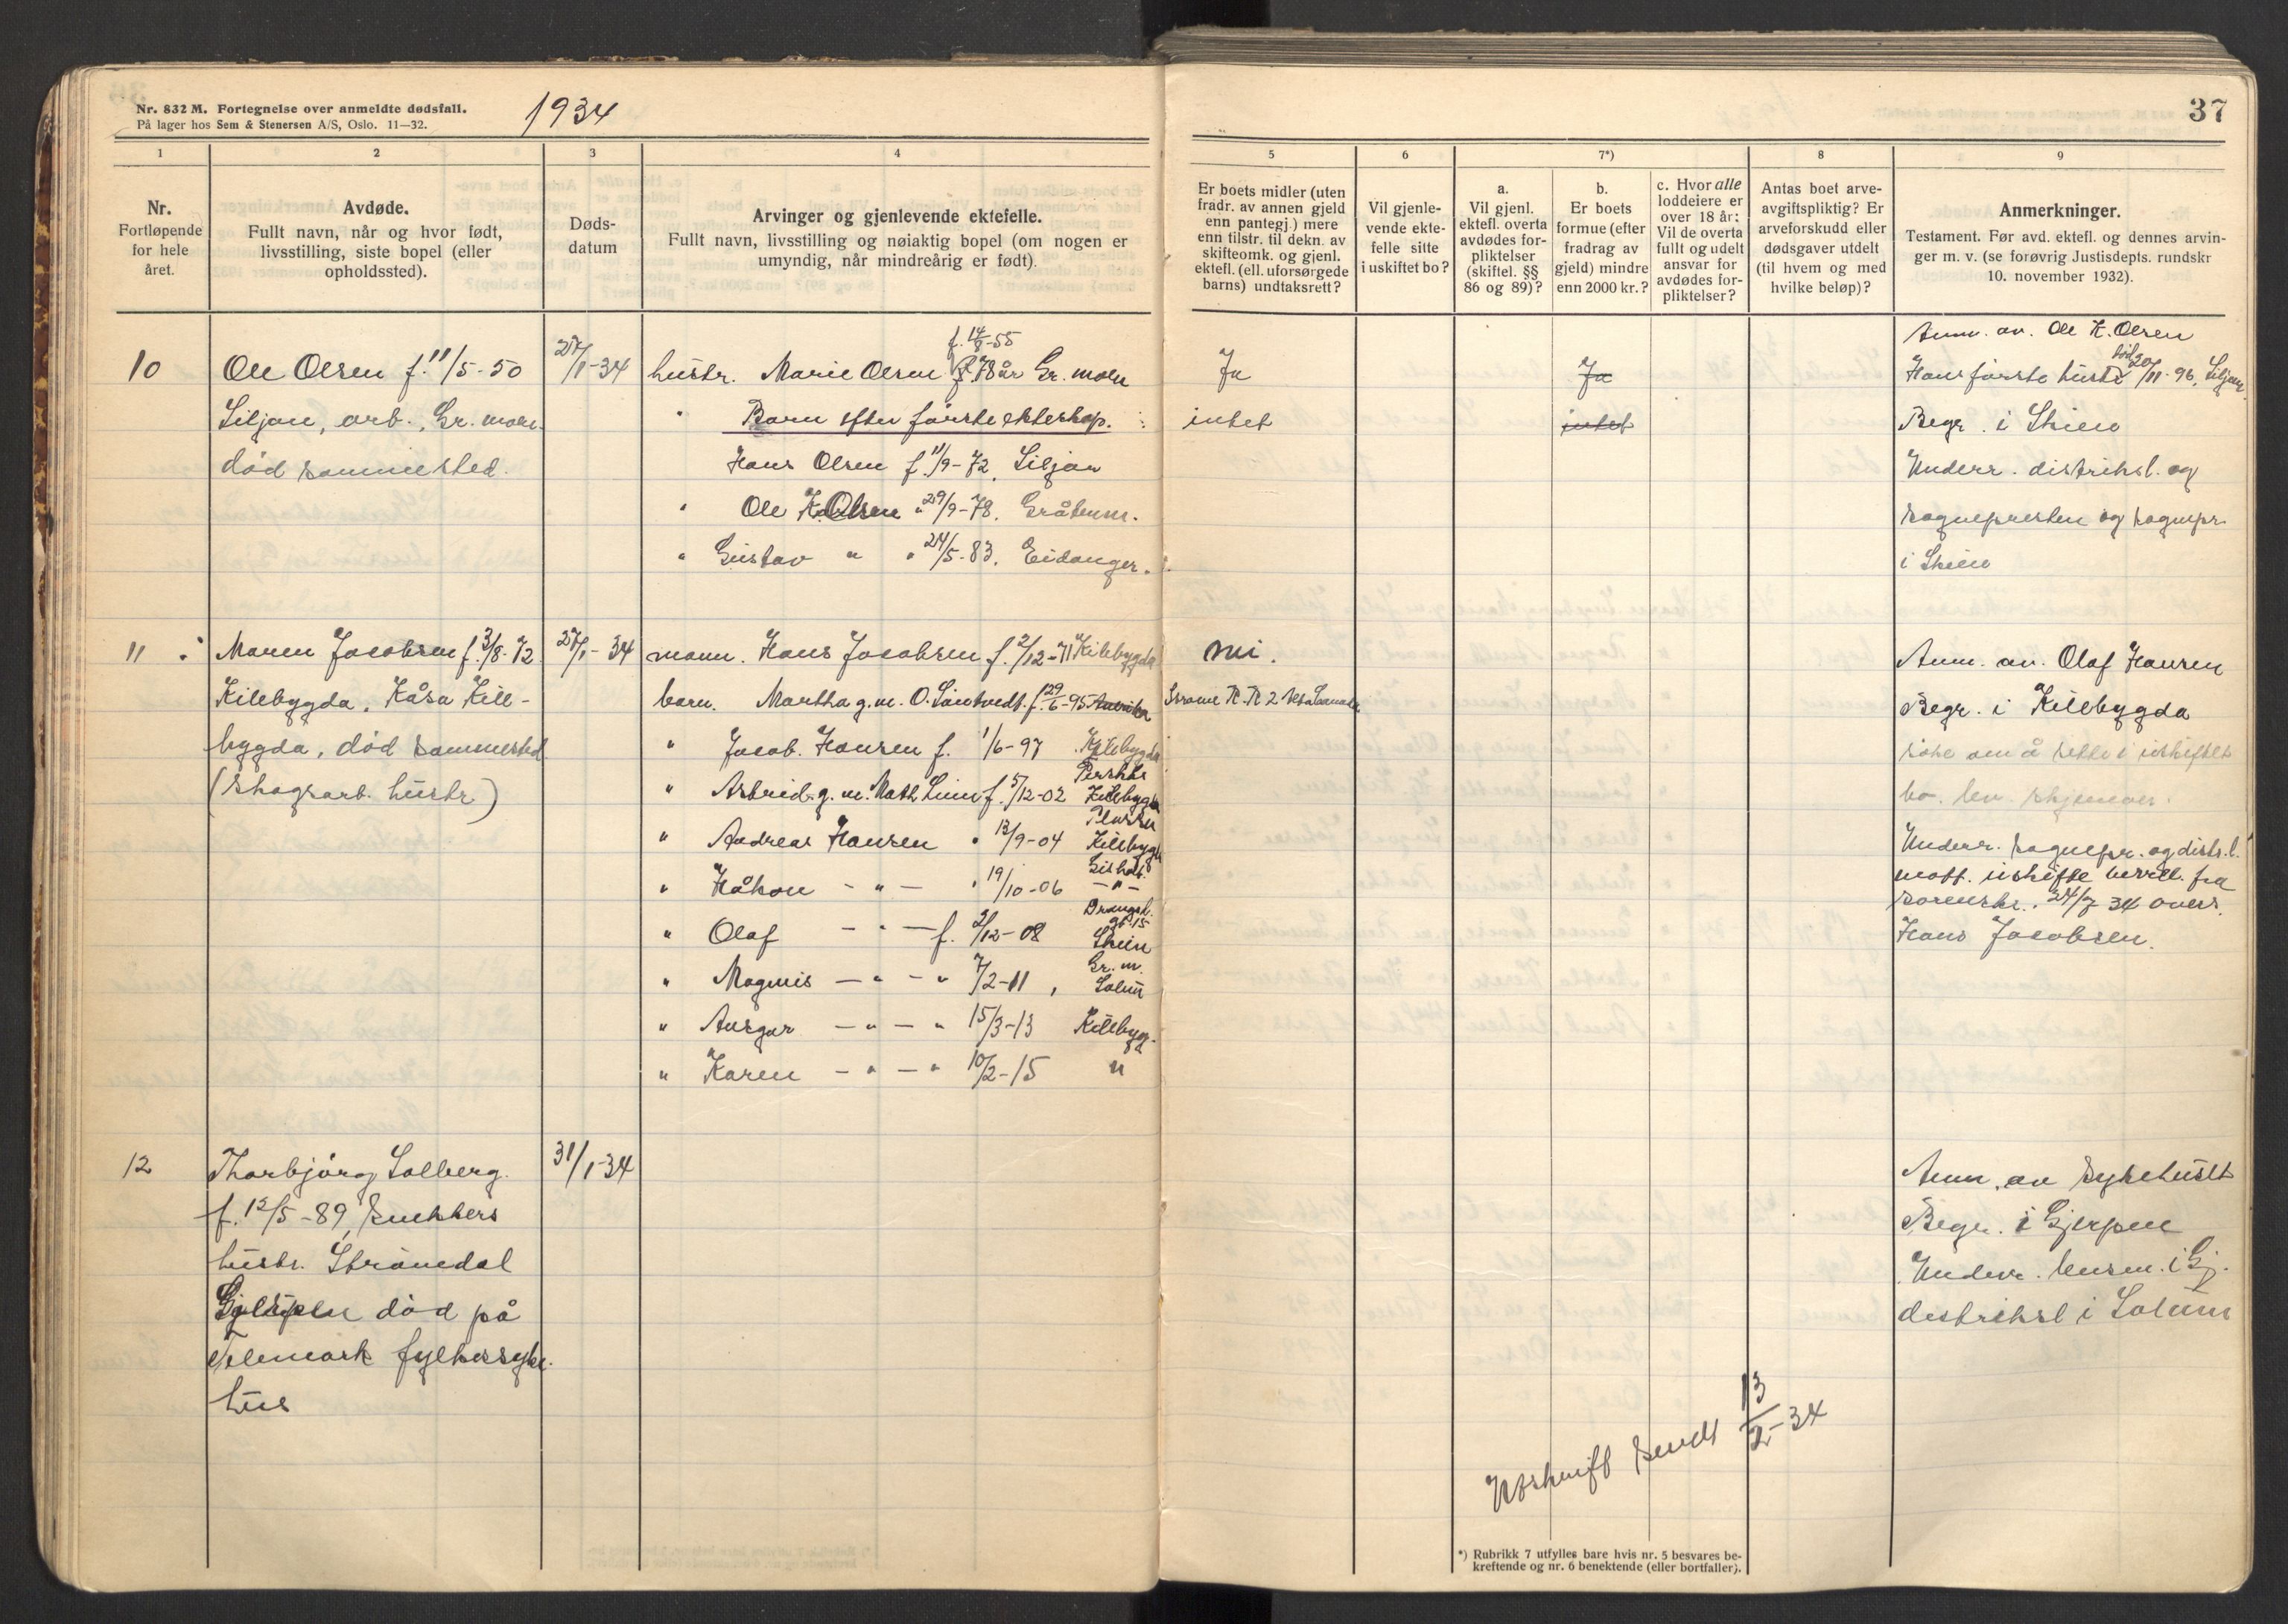 Nr. 832 M. Fortegnelse over anmeldte dødsfall.
På lager hos Sem & Stenersen A/S, Oslo. 11—32.
1934
37
1 2 3 4 5 6 7*) 8 9
Nr.
Fortløpende
for hele
året.
Avdøde.
Fullt navn, når og hvor født,
livsstilling, siste bopel (eller
opholdssted).
Døds-
datum
Arvinger og gjenlevende ektefelle.
Fullt navn, livsstilling og nøiaktig bopel (om nogen er
umyndig, når mindreårig er født).
Er boets midler (uten
fradr. av annen gjeld
enn pantegj.) mere
enn tilstr. til dekn. av
skifteomk. og gjenl.
ektef. (ell. uforsørgede
barns) undtaksrett?
Vil gjenle-
vende ekte-
felle sitte
i uskiftet bo?
a.
Vil gjenl.
ektefl. overta
avdødes for-
pliktelser
(skiftel. §§
86 og 89)?
b.
Er boets
formue (efter
fradrag av
gjeld) mindre
enn 2000 kr.?
c. Hvor alle
loddeiere er
over 18 år:
Vil de overta
fullt og udelt
ansvar for
avdødes for-
pliktelser?
Antas boet arve-
avgiftspliktig? Er
arveforskudd eller
dødsgaver utdelt
(til hvem og med
hvilke beløp)?
Anmerkninger.
Testament. Før avd. ektefl. og dennes arvin-
ger m. v. (se forøvrig Justisdepts. rundskr
10. november 1932).
10
Ole Olsen f. 11/5-50
Siljan, arb., Gr. moen.
död sammested.
27/1-34
f. 14/8-55
hustr. Marie Olsen 78 år Gr. moen
" Barn efter første ekteskap.
Hans Olsen f. 11/9-72, Siljan
" Ole K. Olsen " 29/9-78. Gråtenm.
" Gustav " " 24/5-83. Eidanger.
Ja
intet
Ja
intet
Anm. av. Ole K. Olsen
Hans første hustr. död 20/11-96, Siljan.
Begr. i Skien
Underr. distriksl. og
sognepresten og sognepr.
i Skien
11
Maren Jacobsen f. 3/8-72
Kilebygda, Kåsa Kile-
bygda, död sammested.
(skogsarb. hustr.)
27/1-34
mann. Hans Jacobsen f. 2/12-71 Kilebygda
barn. Martha g. m. O. Santvedt. f. 29/6-95 Amerika
" Jacob. Hansen f. 1/6-97 Kilebygda
" Astrid. g. m. Math Lunn f. 5/12-02 Kilebygda
" Andreas Hansen " 13/9-04 Kilebygda
" Håkon - " - " 19/10-06 - " -
" Olaf - " - f. 2/12-08 Skien
" Magnus - " - " 7/2-11, Gr. m. Solum
" Ansgar - " - " 15/3-13 Kilebygg.
" Karen - " - " 10/2-15 "
nei.
Anm. av. Olaf Hansen
Begr. i Kilebygda
söke om å sitte i uskiftet
bo. lev. skjemaer.
Underr. sognepr. og distr. l.
mott. uskifte bevill. fra
sorenskr. 24/7 34 overs.
Hans Jacobsen.
12
Thorbjörg Solberg.
f. 12/5-89, snekkers
hustr. Strömdal
Gjerpen död på
Telemark fylkessyke-
hus
31/1-34
Anm. av sykehuset
Begr. i Gjerpen
Underr. lensm. i Gj.
distriksl i Solum
Utskrift sendt 13/2-34
*) Rubrikk 7 utfylles bare hvis nr. 5 besvares be-
kreftende og nr. 6 benektende (eller bortfaller).